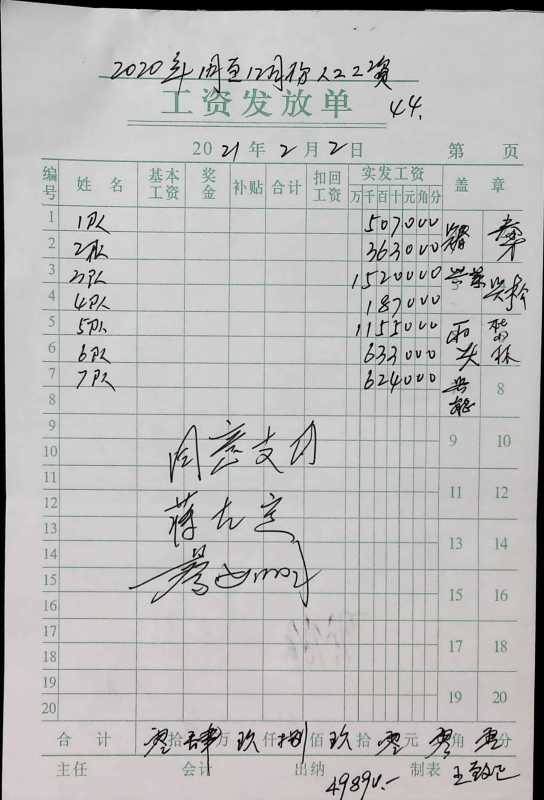 2020年1月至12月份人工工资
工资发放单 44.
2021年2月2日 第 页
编号 姓名 基本工资 奖金 补贴 合计 扣回工资 实发工资 盖章
万千百十元角分
1 1队 507000
2 2队 363000
3 3队 1520000
4 4队 187000
5 5队 1155000
6 6队 633000
7 7队 624000 8
8
9 9 10
10
11 11 12
12
13 13 14
14
15 15 16
16
17 17 18
18
19 19 20
20
同意支付
合计 零拾肆万玖仟捌佰玖拾零元零角零分
主任 会计 出纳 制表
49890.-